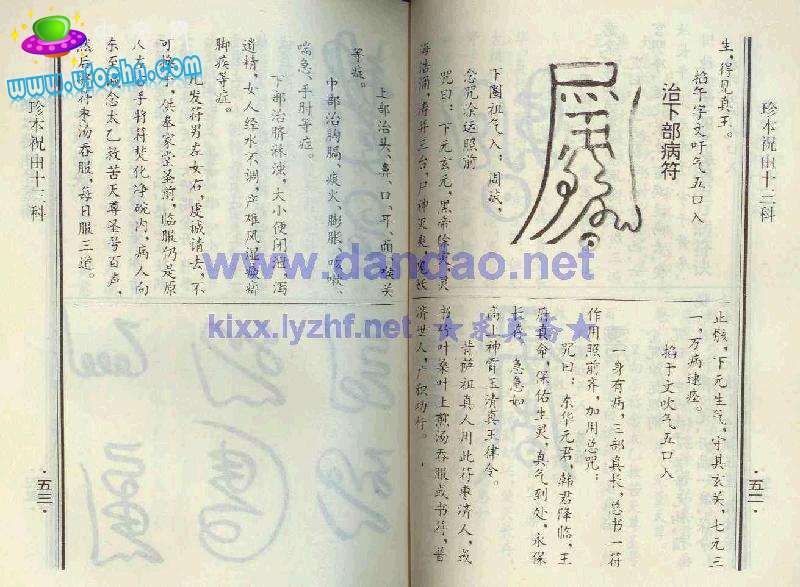 珍本祝由十三科
生,得见真王。
掐午字文吁气五口入
治下部病符
下图祖气入;
念咒余运照前
咒曰:下元玄元,黑帝除灾,灵
止骸,下元生气,守其玄关,七元三
一,万病速痊。
掐子文吹气五口入
一身有病,三部真长,总书一符
作用照前齐,加用总咒:
咒曰:东华元君,韩君降临,王
符真命,保佑生灵,真气到处,永保
长春,急急如
高上神霄玉清真王律令。
昔萨祖真人用此符枣济人,或
书竹叶桑叶上煎汤吞服或书符,普
济世人,广积功行。
·五二·
上部治头、鼻、口、耳、面、咳关
等症。
中部治胸膈、痰火、膨胀、咳嗽、
喘急、手肘等症。
下部治脐淋浊,大小便闭涩,泻
遗精,女人经水不调,产难风湿瘫痪
脚疾等症。
发符男左女右,虔诚请去,不
可换手,供奉家堂圣前,临服仍是原
人右手将符焚化净碗内,病人向
东至诚念太乙救苦天尊圣号百声,
然后将符枣汤吞服,每日服三道。
珍本祝由十三科
·五三·
www.ulochi.com
www.dandao.net
kixx.lyzhf.net ★求真斋★